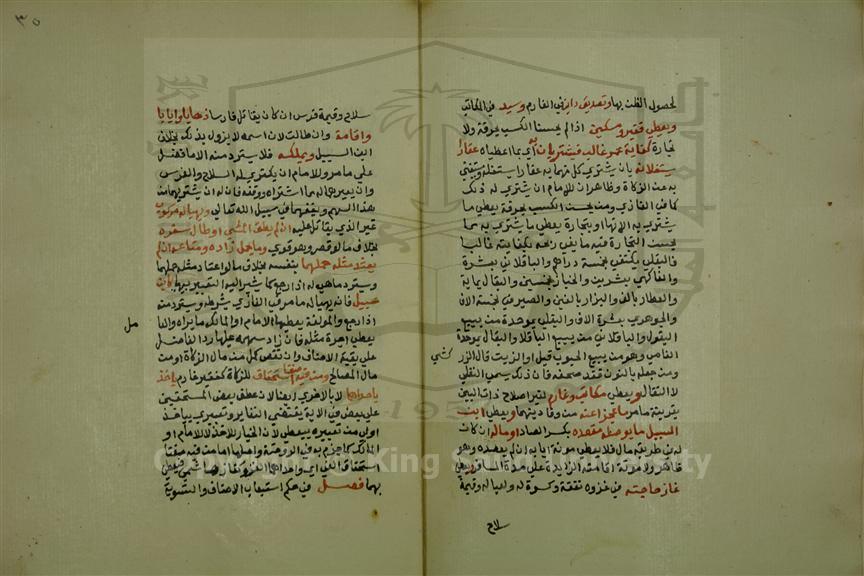 لحصول الظن بها وتصديق داين في الغارم وسيد في المكاتب
ويعطي فقير ومسكين اذا لم يحسنا الكسب بحرفة ولا
تجارة كفاية عمر غالب فيشتريان به اي بما اعطياه عقارا
يستغلانه بان يشتري كل منهما به عقارا يستغله ويغتني
به عن الزكاة وظاهر ان للامام ان يشتري له ذلك
كما في الغازي ومن يحسن الكسب بحرفة يعطي ما
يشتري به الاتها او بتجارة يعطي ما يشتري به مما
يحسن التجارة فيه ما يفي ربحه بكفايته غالبا
فالبقلي يكتفي بخمسة دراهم والباقلاني بعشرة
والفاكهي بعشرين والخباز بخمسين والبقال بماية
والعطار بالف والبزاز بالفين والصيرفي بخمسة الاف
والجوهري بعشرة الاف والبقلي بموحدة من يبيع
البقول والباقلاني من يبيع الباقلا والبقال بموحدة
الفامي وهو من يبيع الحبوب قيل او الزيت قال الزركشي
ومن جعله بالنون فقد صحفه فان ذلك يسمي النقلي
لا النقال ويعطي مكاتب وغارم لغير اصلاح ذات البين
بقرينة ما مر ما عجزا عنه من وفا دينهما ويعطي ابن
السبيل ما يوصله مقصده بكسر الصاد او ماله ان كان
له في طريقه مال فلا يعطي مونة ايابه ان لم يقصده وهو
ظاهر ولا مونة اقامته الزايدة علي مدة المسافر ويعطي
غاز حاجته في غزوه نفقة وكسوة له ولعياله وقيمة
سلاح
٣٥
سلاح وقيمة فرس ان كان يقاتل فارسا ذهابا وايابا
واقامة وان طالت لان اسمه لا يزول بذلك بخلاف
ابن السبيل ويملكه فلا يسترد منه الا ما فضل
علي ما مر وللامام ان يكتري له السلاح والفرس
وان يعيرهما له مما اشتراه ووقفه فان له ان يشتريهما من
هذا السهم ويقفهما في سبيل الله تعالي ويهيا له مركوب
غير الذي يقاتل عليه ان لم يطق المشي او طال سفره
بخلاف ما لو قصر وهو قوي وما يحمل زاده ومتاعه ان لم
يعتد مثله حملهما بنفسه بخلاف ما لو اعتاد مثله حملهما
ويسترد ما هيي له اذا رجع كما يشير اليه التعبير بيهيا كابن
سبيل فانه يهيا له ما مر في الغازي بشرطه ويسترد منه
اذا رجع والمولفة يعطيها الامام او المالك ما يراه والعامل
يعطي اجرة مثله فان زاد سهمه عليها رد الفاضل
علي بقية الاصناف وان نقص كمل من مال الزكاة او من
مال المصالح ومن فيه صفتا استحقاق للزكاة كفقير وغارم ياخذ
باحداهما لا بالاخري ايضا لان عطف بعض المستحقين
علي بعض في الاية يقتضي التغاير وتعبيري بياخذ
اولي من تعبيره بيعطي لان الخيار للاخذ لا للامام او
المالك كما جزم به في الروضة واصلها اما من فيه صفتا
استحقاق للفي اي واحداهما الغزو كغاز هاشمي فيعطي
بهما فصل في حكم استيعاب الاصناف والتسوية